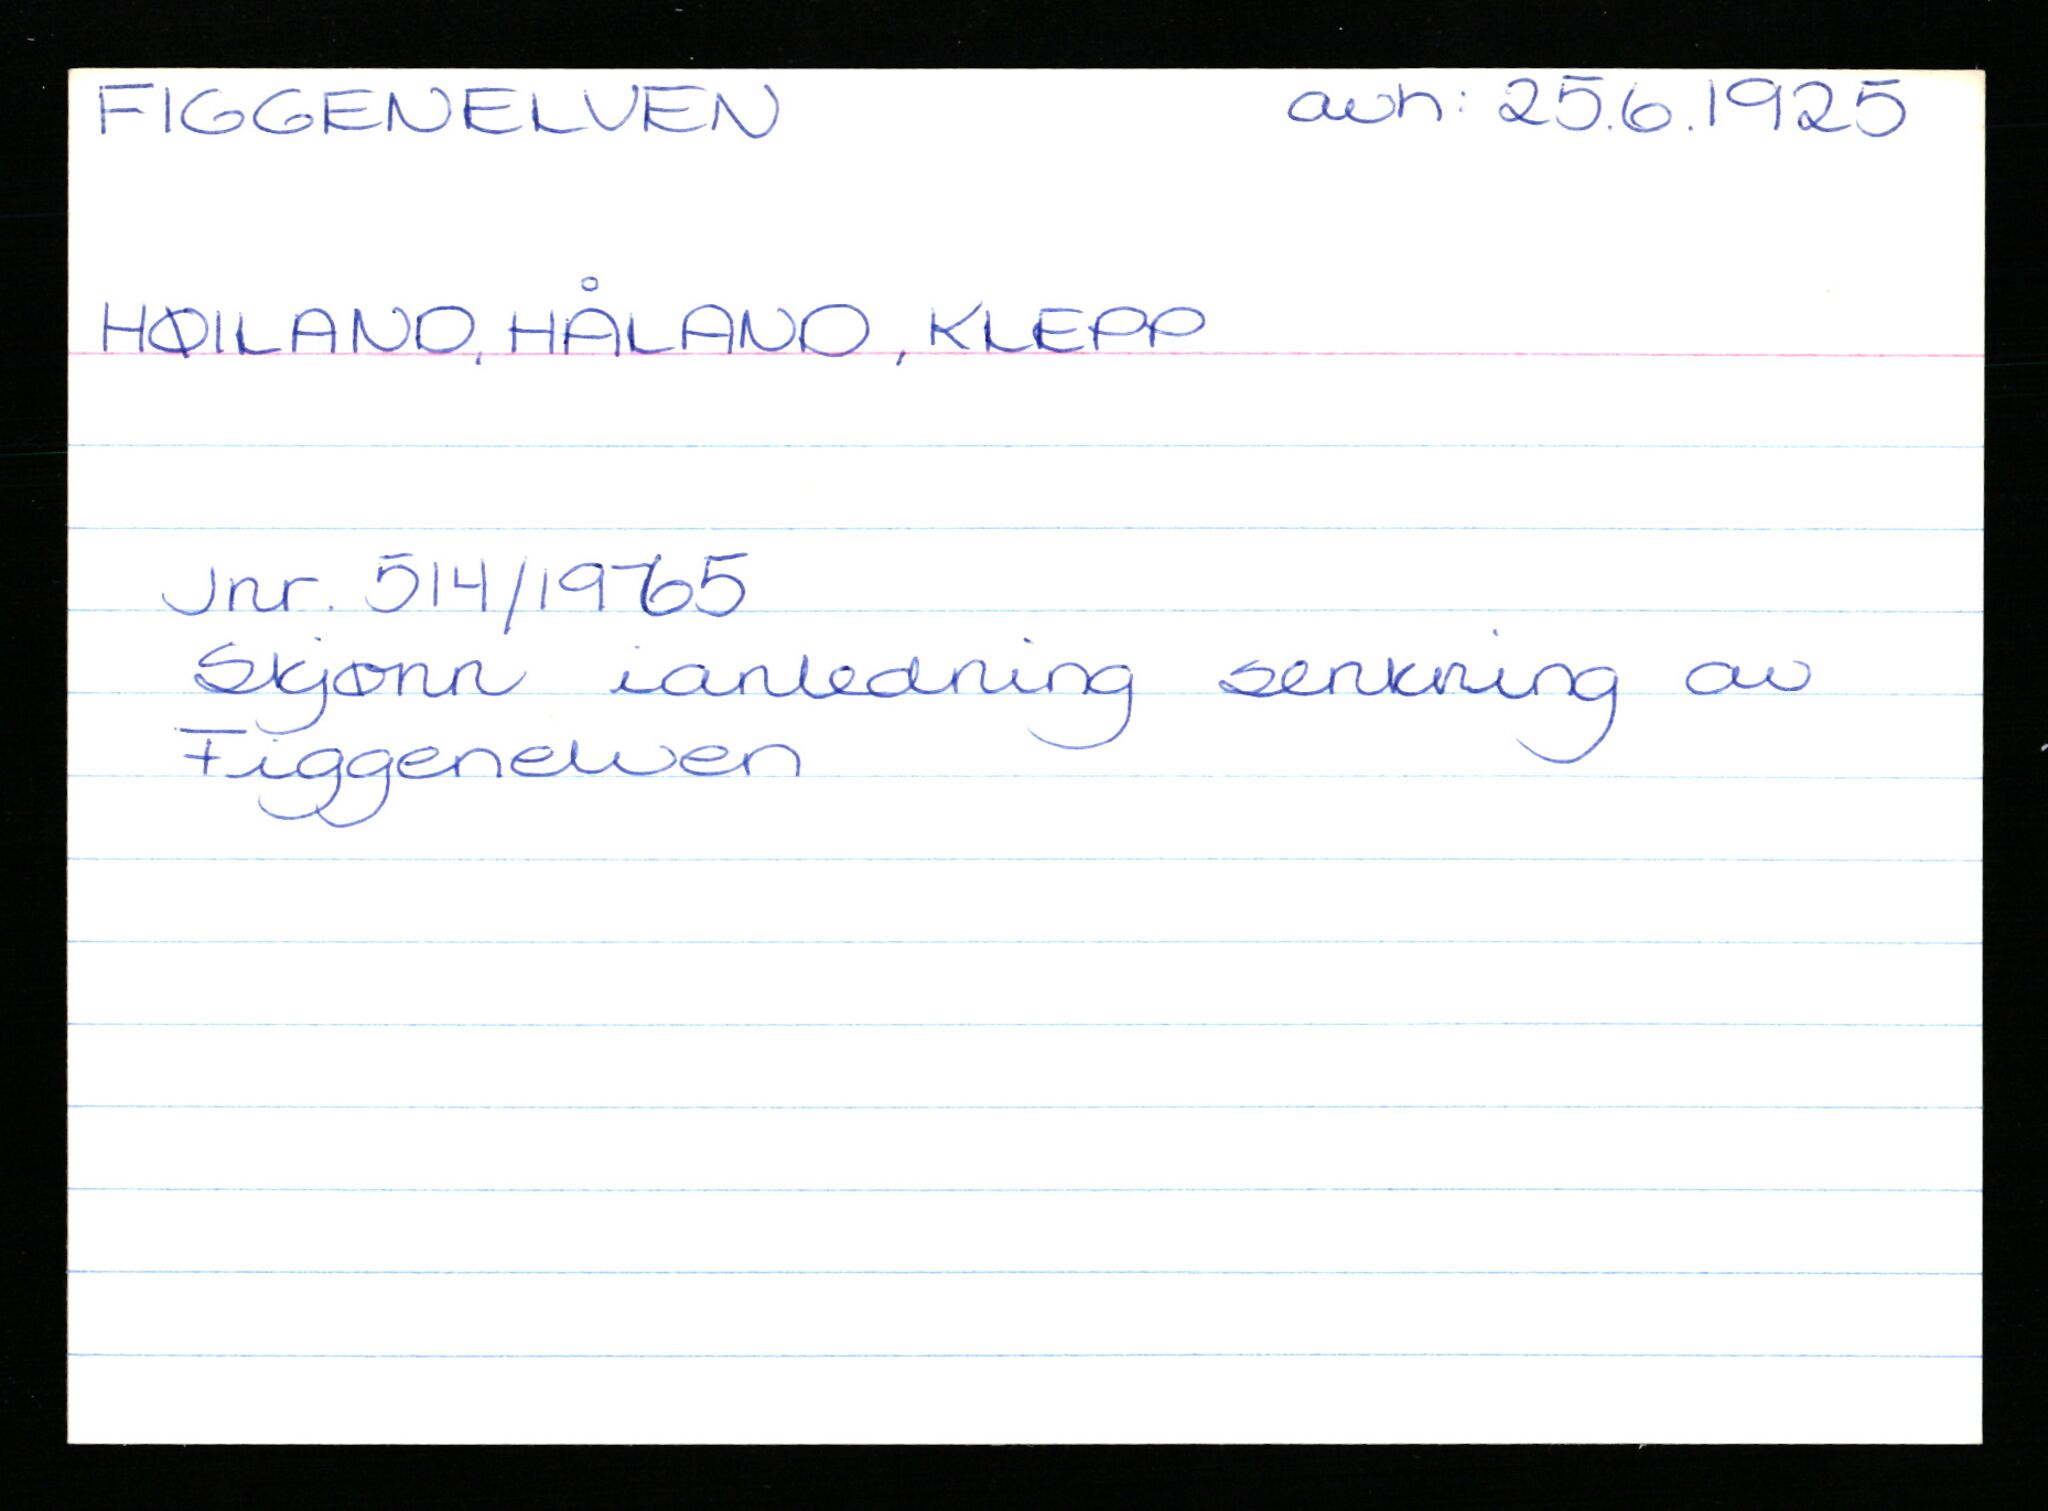 FIGGENELVEN avh: 25.6.1925
HØILAND, HÅLAND, KLEPP
Jnr. 514/1965
Skjønn ianledning senkning av
Figgenelven